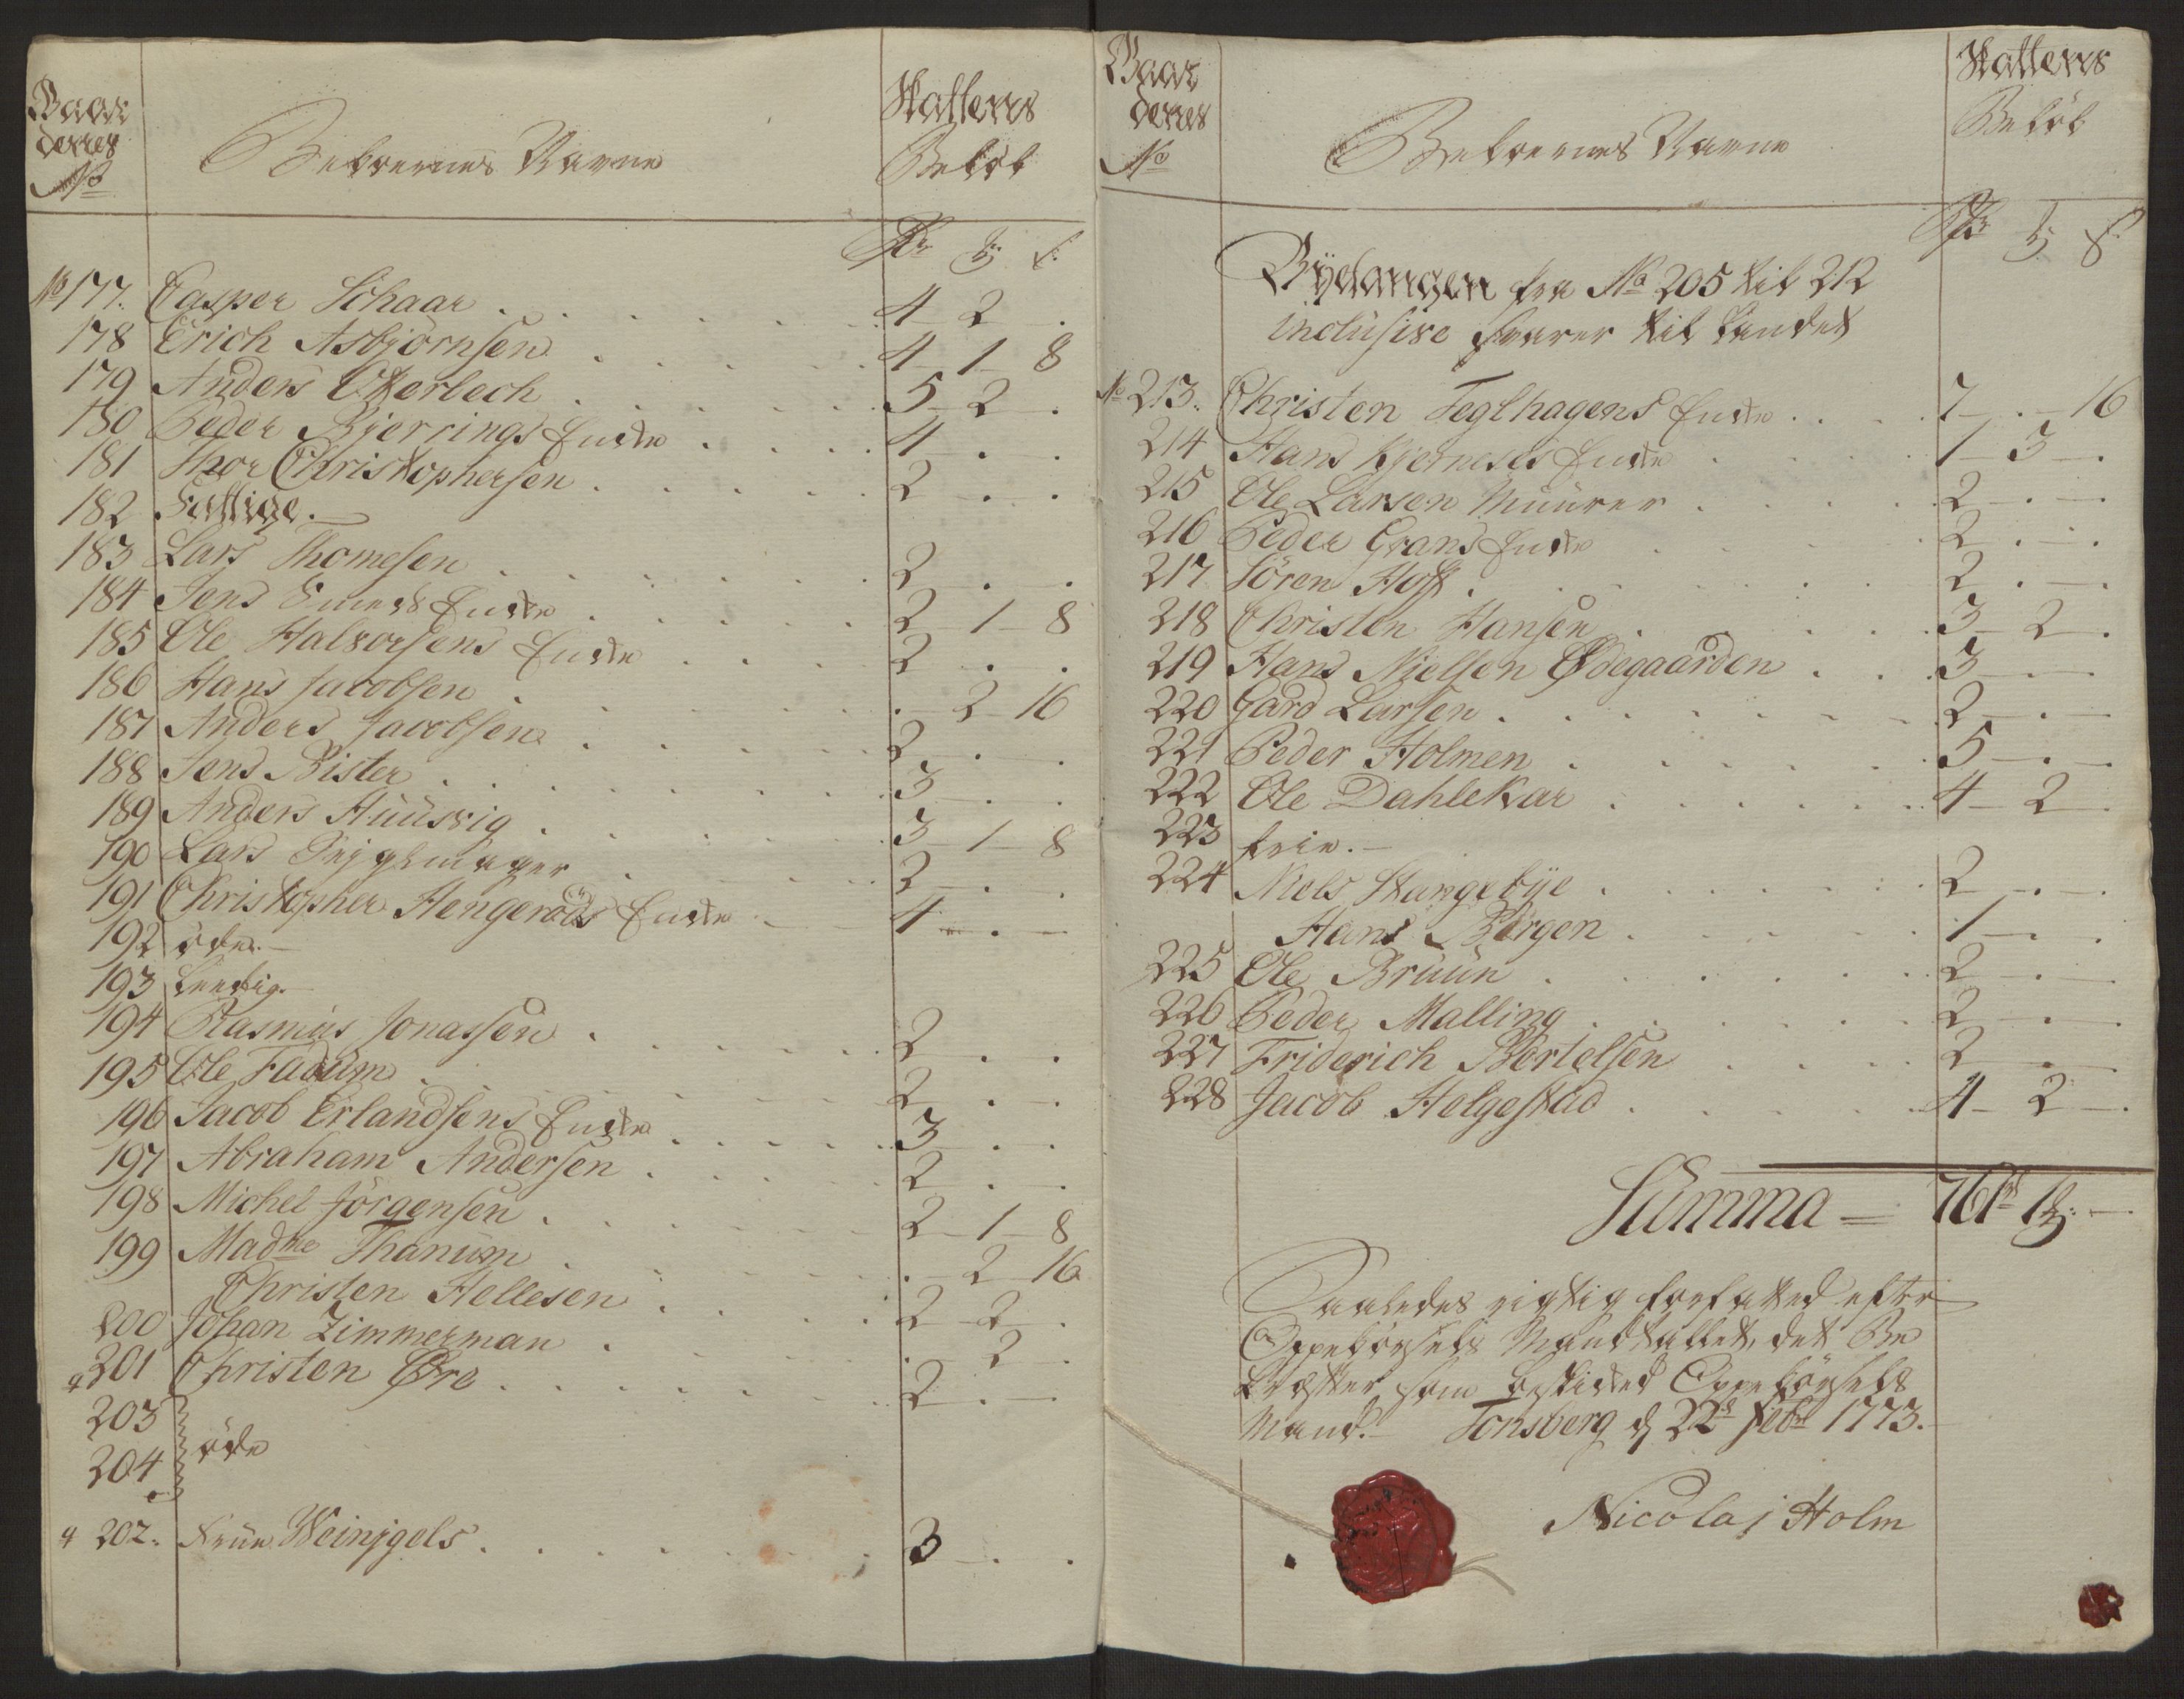 Gaar
dernes
No
Beboernes Navne
Skattens
Beløb
Rdr ß
No 177. Casper Schaar . . . 4 - 2 .
178 Erich Asbjörnsen . . . 4 - 1 - 8
179 Anders Otterbech . . . 5 - 2 - .
180 Peder Bjerrings Enke . . . 4 - . - .
181 Thor Christophersen . . . 2 - . - .
182 Fattige.
183 Lars Thomesen . . . 2 - . - .
184 Jens Enke . . . 2 - 1 - 8
185 Ole Halvorsens Enke . . . 2 - . - .
186 Hans Jacobsen . . . . - 2 - 16
187 Anders Jacobsen . . . 2 - . - .
188 Jens Bister . . . 3 - . - .
189 Anders Huusvig . . . 3 - 1 - 8
190 Lars Tejglmager . . . 2 - . - .
191 Christopher Hengeröds Enke . . . 4 - . -
192 öde.
193 Leedig.
194 Rasmus Jonassen . . . 2 - . - .
195 Ole Fadum . . . 2 - . - .
196 Jacob Erlandsens Enke . . . 3 - . - .
197 Abraham Andersen . . . 2 - . - .
198 Michel Jörgensen . . . 2 - 1 - 8
199 Madme Thanum . . . . - 2 - 16
Christen Hellesen . . . 2 - 2 - .
200 Johan Zimmerman . . . . 2 .
201 Christen Øre . . . 2 - . -
203
204 öde
202. Frue Weinjgels . . . 3 - . .
Gaar
dernes
No
Beboernes Navne
Skattens
Beløb
Rdr ß
Bydangen fra No 205 til 212
inclusive svarer til Landet
No 213. Christen Teglhagens Enke . . . 7 - . - 16
214 Hans Kjerneses Enke . . . 1 - 3 - .
215 Ole Larsen Muurer . . . 2 - . - .
216 Peder Grans Enke . . . 2 - . - .
217 Sören Hoff . . . 2 - . - .
218 Christen Hansen . . . 3 - 2 - .
219 Hans Nielsen Ødegaarden . . . 3 - . -
220 Gard Larsen . . . 2 - . -
221 Peder Holmen . . . 5 - . - .
222 Ole Dahlekar . . . 4 - 2 - .
223 frie.
224 Niels Stangebÿe . . . 2 - . - .
Hans Börgen . . . 1 - . .
225 Ole Bruun . . . 2 - . - .
226 Peder Malling . . . 2 - . - .
227 Friderich Bertelsen . . . 2 - . - .
228 Jacob Helgestad . . . 4 - 2 - .
Summa = 761 1
Saaledes rigtig forfatted efter
Oppebörsels Mandtallet, det Be
kræfter som beskikked Oppebörsels
Mand. Tonsberg d 22 Febr 1773.
Nicolaj Holm